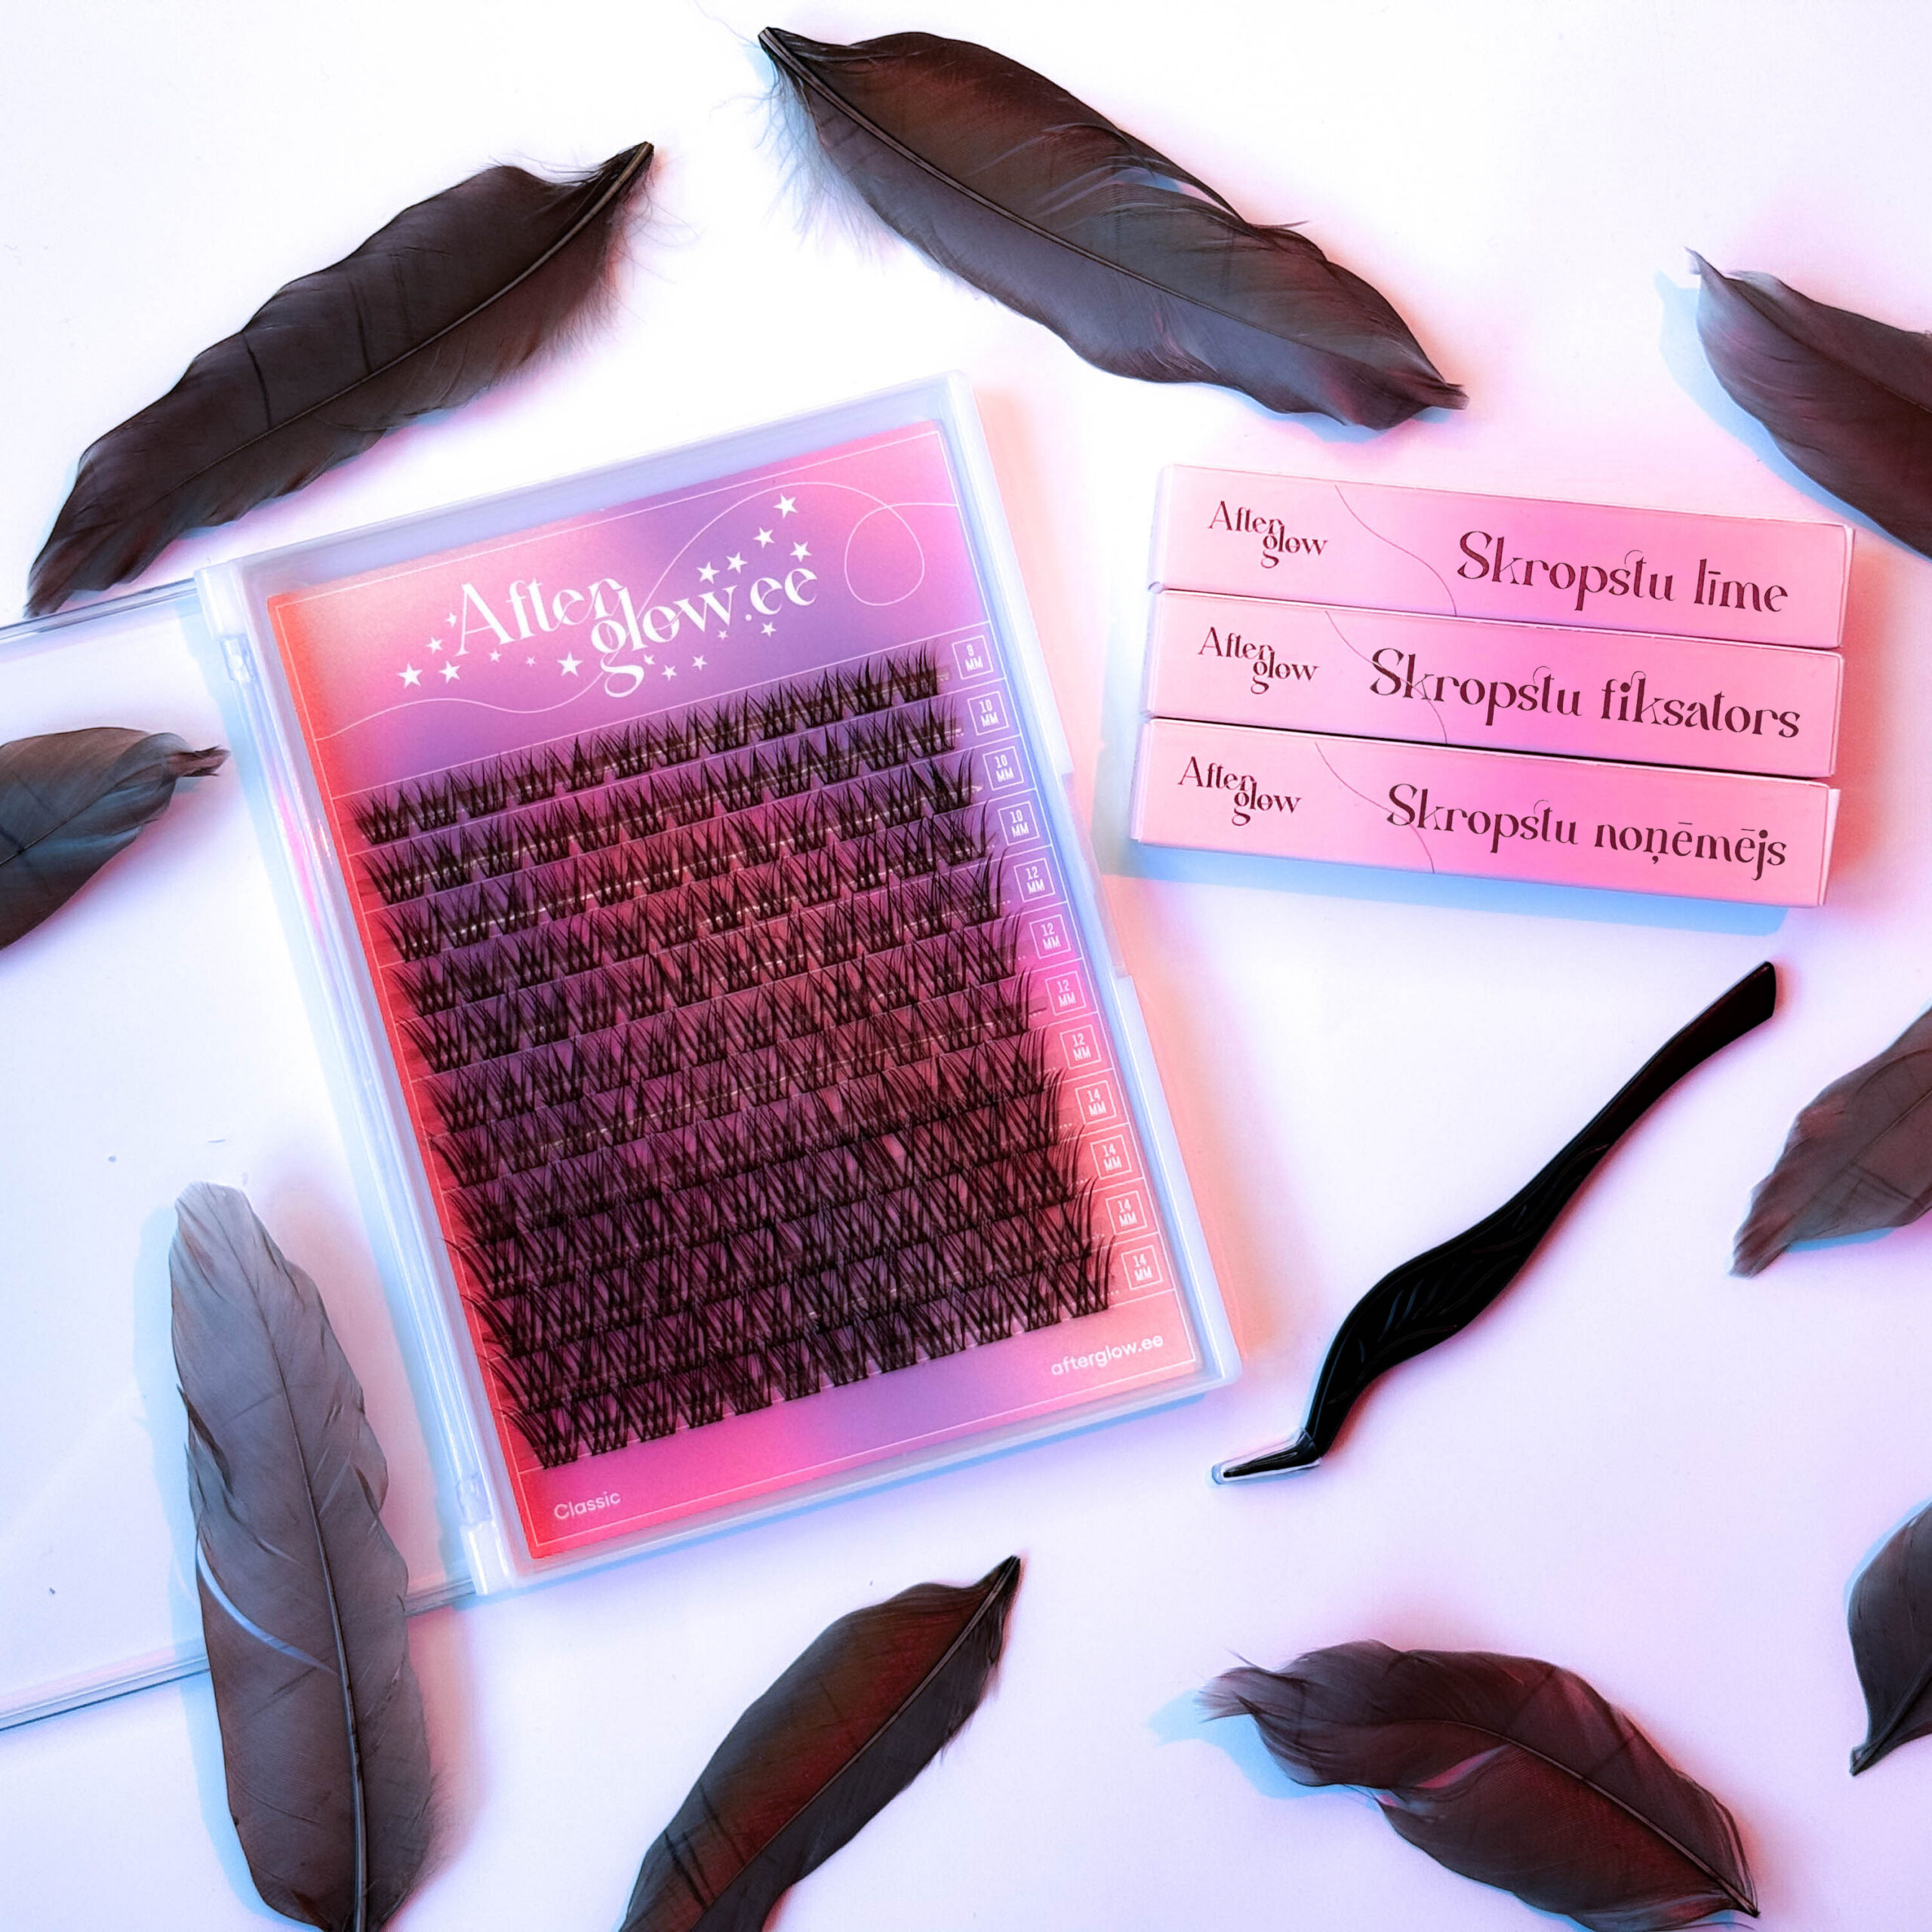 After
glow.ee
8
MM
10
MM
10
MM
10
MM
12
MM
12
MM
12
MM
12
MM
14
MM
14
MM
14
MM
14
MM
afterglow.ee
Classic
After
glow
Skropstu līme
After
glow
Skropstu fiksators
After
glow
Skropstu noņēmējs